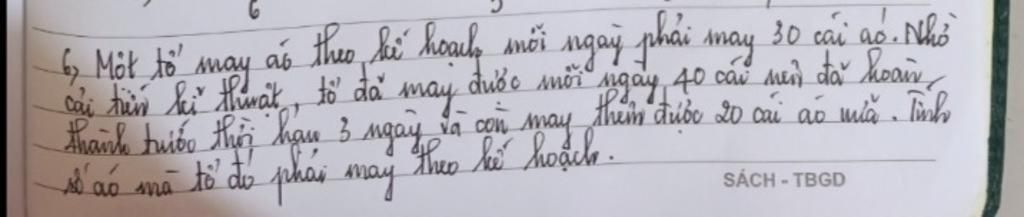 6
6, Một tổ may áo theo kế hoạch mỗi ngày phải may 30 cái áo. Nhờ
cải tiến kĩ thuật, tổ đã may được mỗi ngày 40 cái nên đã hoàn
thành trước thời hạn 3 ngày và còn may thêm được 20 cái áo nữa. Tính
số áo mà tổ đó phải may theo kế hoạch.
SÁCH - TBGD